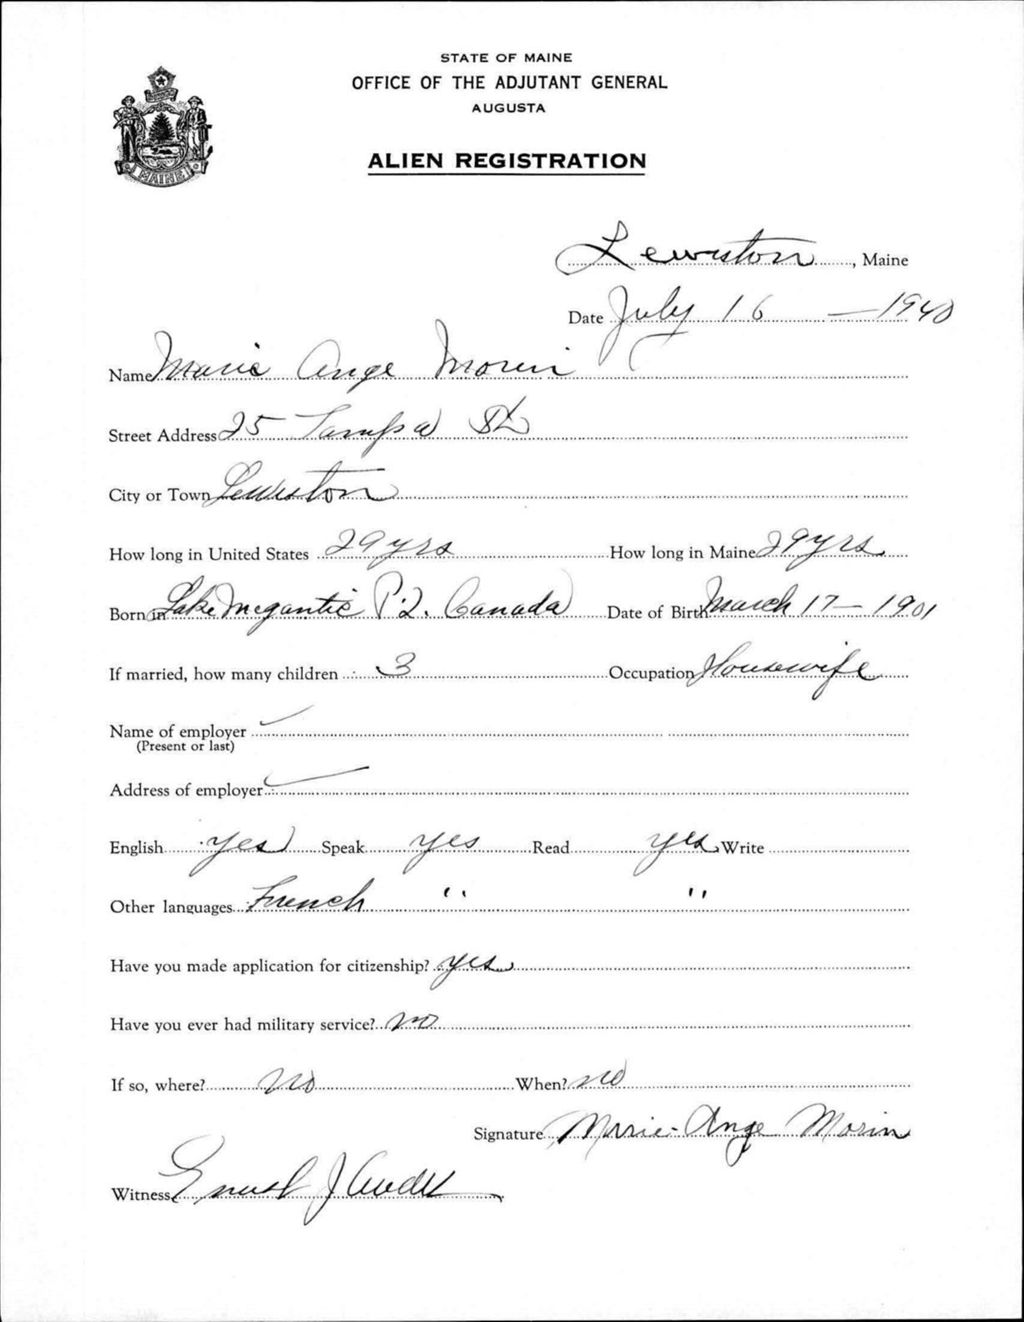 STATE OF MAINE
OFFICE OF THE ADJUTANT GENERAL
AUGUSTA
MAINE
ALIEN REGISTRATION
Lewiston, Maine
Date July 16 — 1940
Name Marie Ange Morin
Street Address 25 Tampa St
City or Town Lewiston
How long in United States 29 yrs How long in Maine 29 yrs
Born in Lake Megantic P.Q. Canada Date of Birth March 17 – 1901
If married, how many children 3 Occupation Housewife
Name of employer
(Present or last)
Address of employer
English yes Speak yes Read yes Write
Other languages French " "
Have you made application for citizenship? yes
Have you ever had military service? no
If so, where? no When? no
Signature Marie-Ange Morin
Witness J